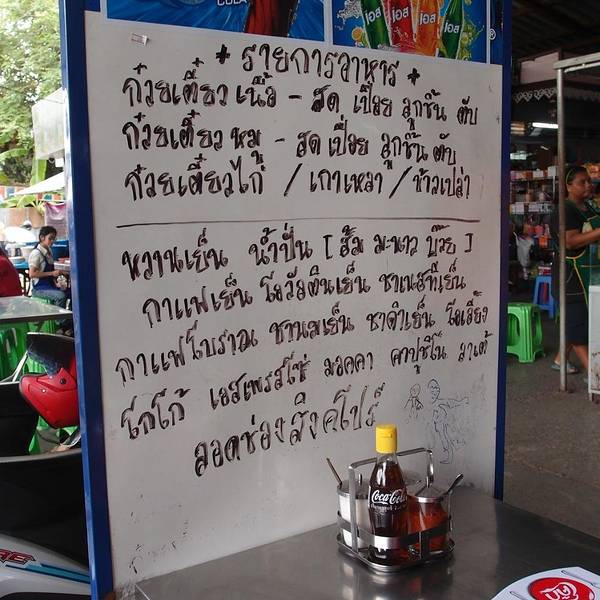 COLA
เอส เอส เอส เอส
+ รายการอาหาร +
ก๋วยเตี๋ยว เนื้อ - สด เปื่อย ลูกชิ้น ตับ
ก๋วยเตี๋ยว หมู - สด เปื่อย ลูกชิ้น ตับ
ก๋วยเตี๋ยวไก่ / เกาเหลา / ข้าวเปล่า
หวานเย็น น้ำปั่น [ ส้ม มะนาว บ๊วย ]
กาแฟเย็น โอวัลตินเย็น ชาเนสทีเย็น
กาแฟโบราณ ชานมเย็น ชาดำเย็น โอเลี้ยง
โกโก้ เอสเพรสโซ่ มอคคา คาปูชิโน ลาเต้
ลอดช่องสิงคโปร์
Coca-Cola